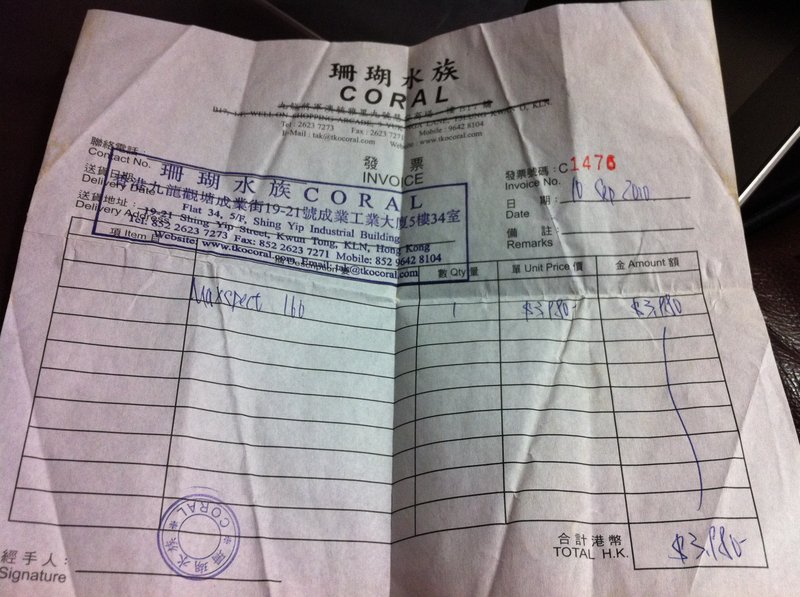 珊瑚水族
CORAL
B17, 1/F, WELL ON SHOPPING ARCADE, 3 YUK NGA LANE, TSEUNG KWAN O, KLN.
Tel : 2623 7273 Fax : 2623 7271 Mobile : 9642 8104
E-Mail : tak@tkocoral.com Website : www.tkocoral.com
聯絡電話 :
Contact No.
發票
INVOICE
發票號碼 : C1476
Invoice No.
送貨日期 :
Delivery Date
日期 : 10 Sep 2010
Date
送貨地址 :
Delivery Address
備註 :
Remarks
珊瑚水族 CORAL
香港九龍觀塘成業街19-21號成業工業大廈5樓34室
Flat 34, 5/F, Shing Yip Industrial Building
19-21 Shing Yip Street, Kwun Tong, KLN, Hong Kong
Tel: 852 2623 7273 Fax: 852 2623 7271 Mobile: 852 9642 8104
Website: www.tkocoral.com Email: tak@tkocoral.com
項 Item 目 Description 數 Qty 量 單 Unit Price 價 金 Amount 額
Maxspect 160 1 $3,980- $3,980
珊瑚水族 * CORAL *
合計港幣
TOTAL H.K. $3,980-
經手人 :
Signature